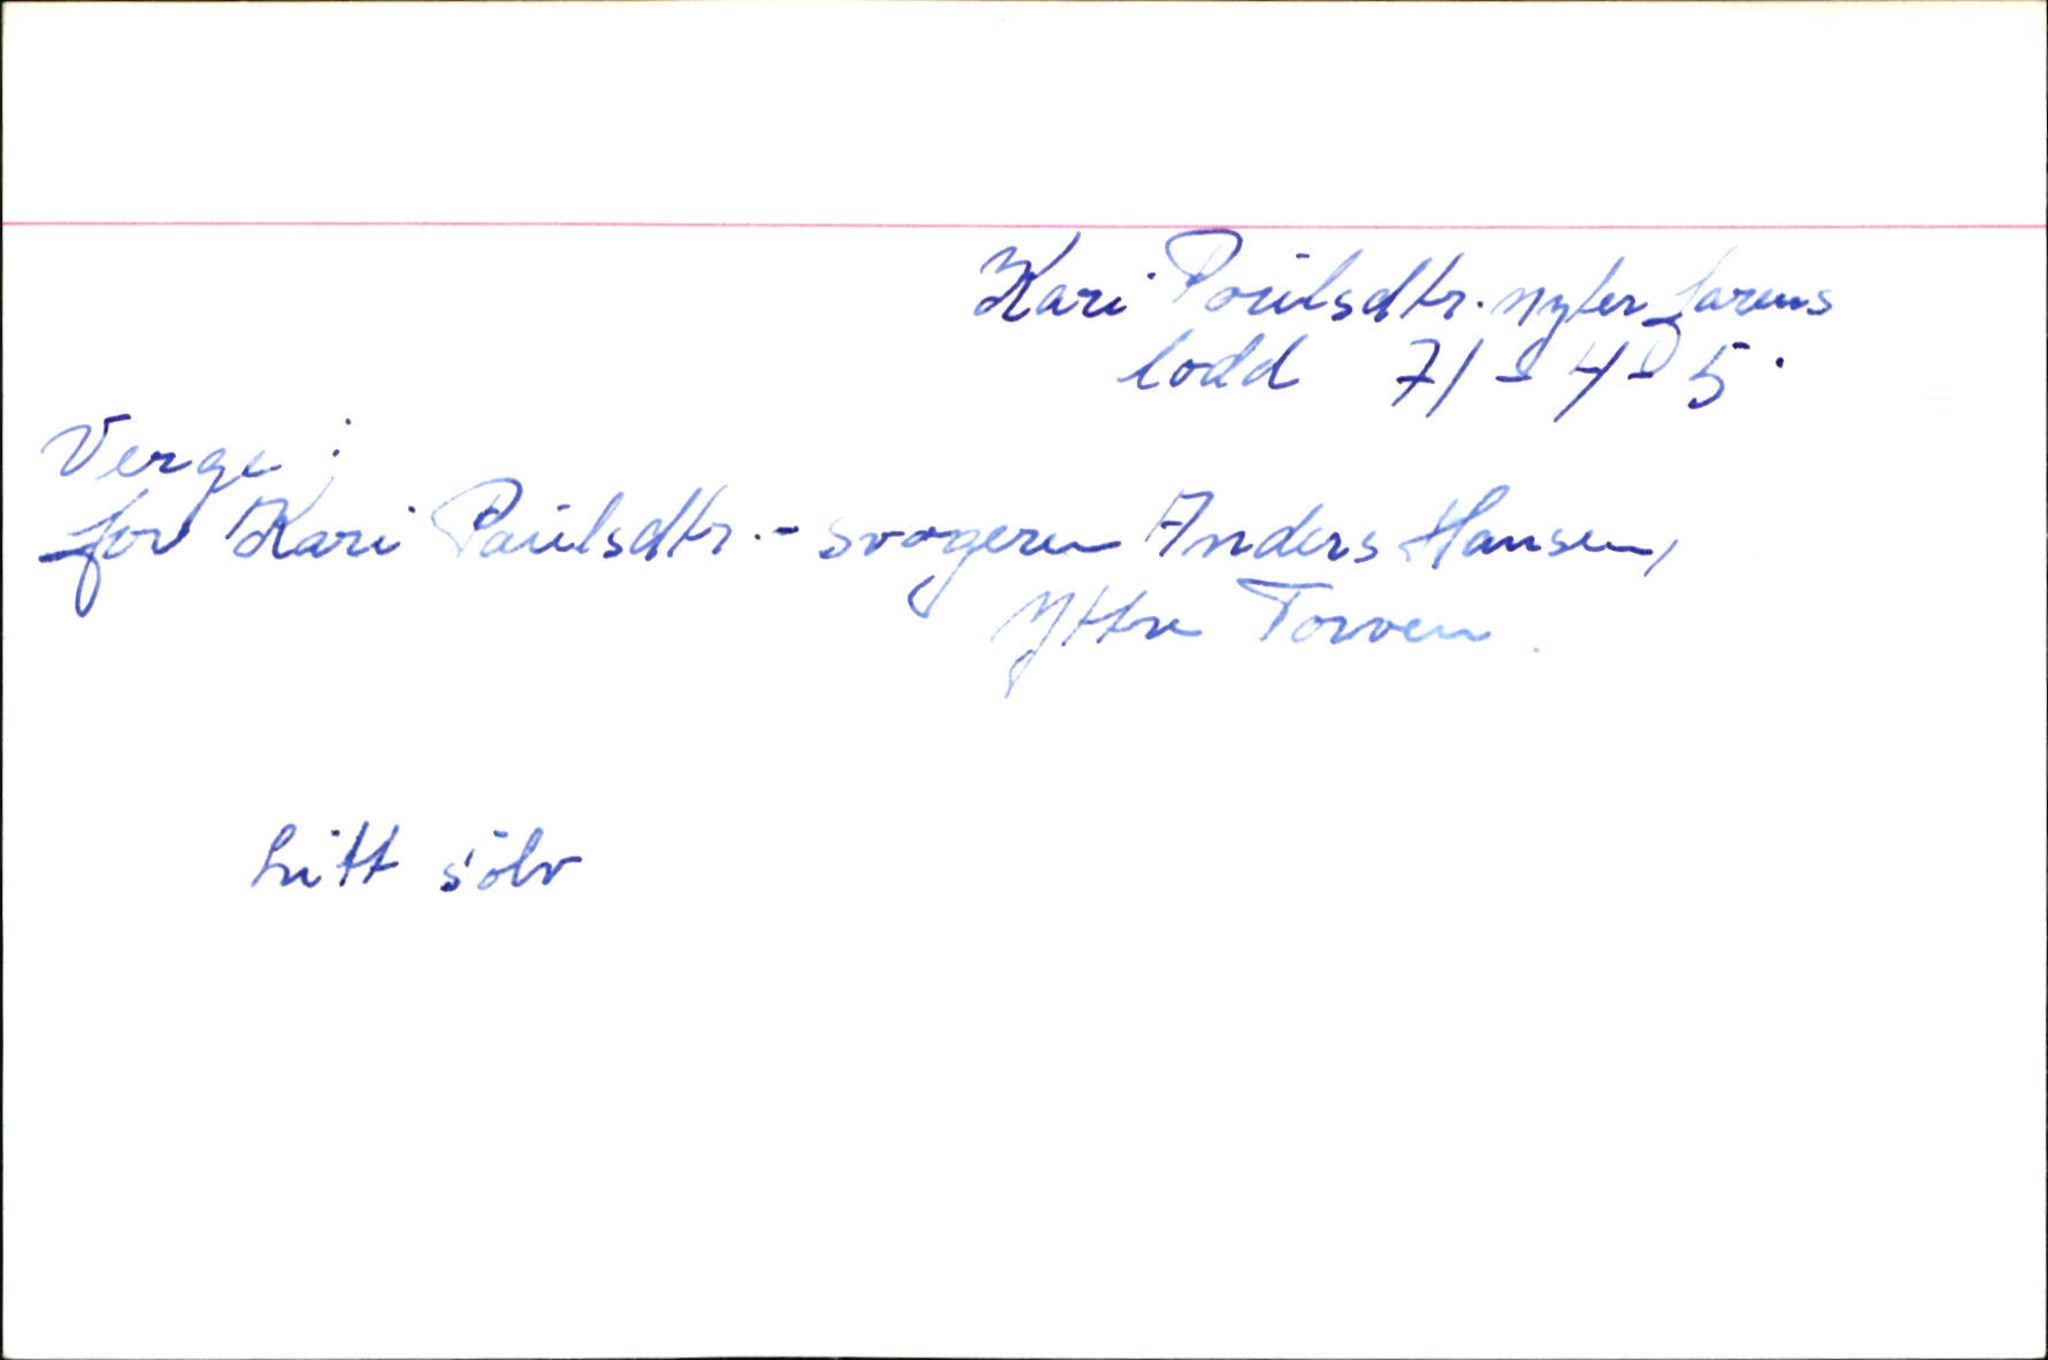 Kari Poulsdtr. nyter farens
lodd 71-4-5.
Verge:
for Kari Paulsdtr. - svogeren Anders Hansen,
Yttre Torven.
Litt sölv